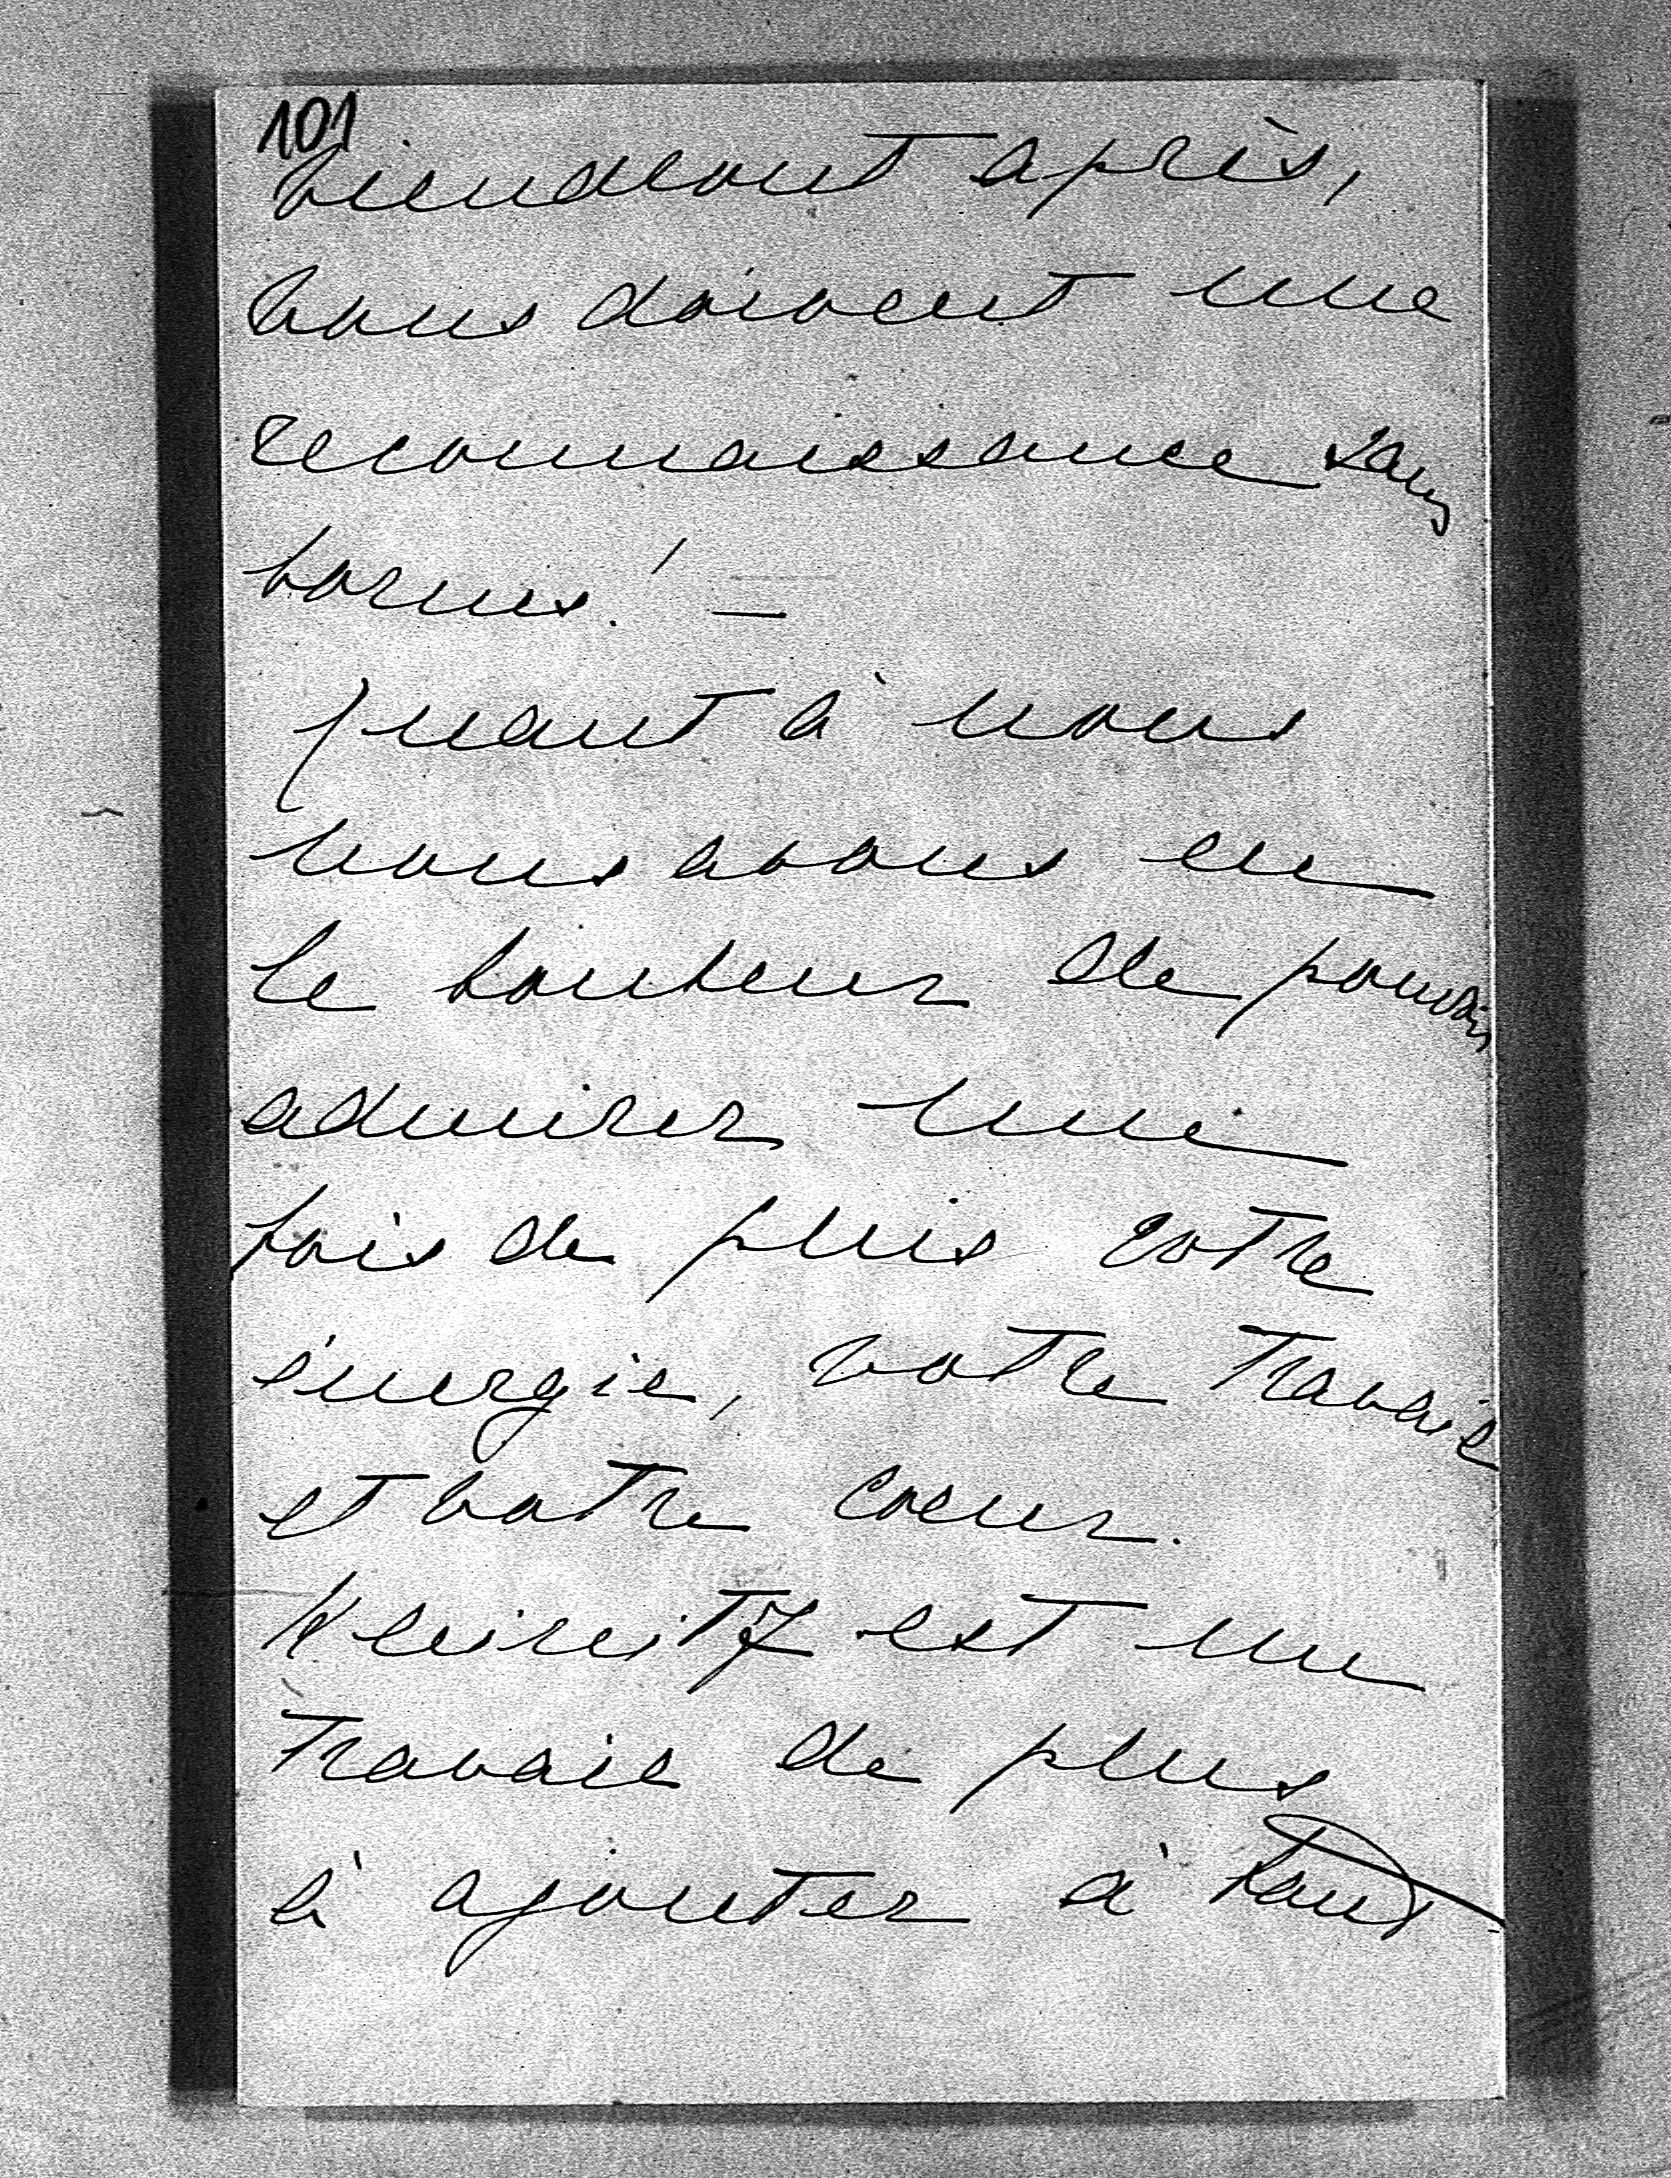 101
viendront après,
vous doivent une
reconnaissance sans
bornes! —
quant à nous
nous avons eu
le bonheur de pouvoir
admirer une
fois de plus votre
énergie, votre travail
et votre coeur.
est un
travail de plus
à ajouter à tant